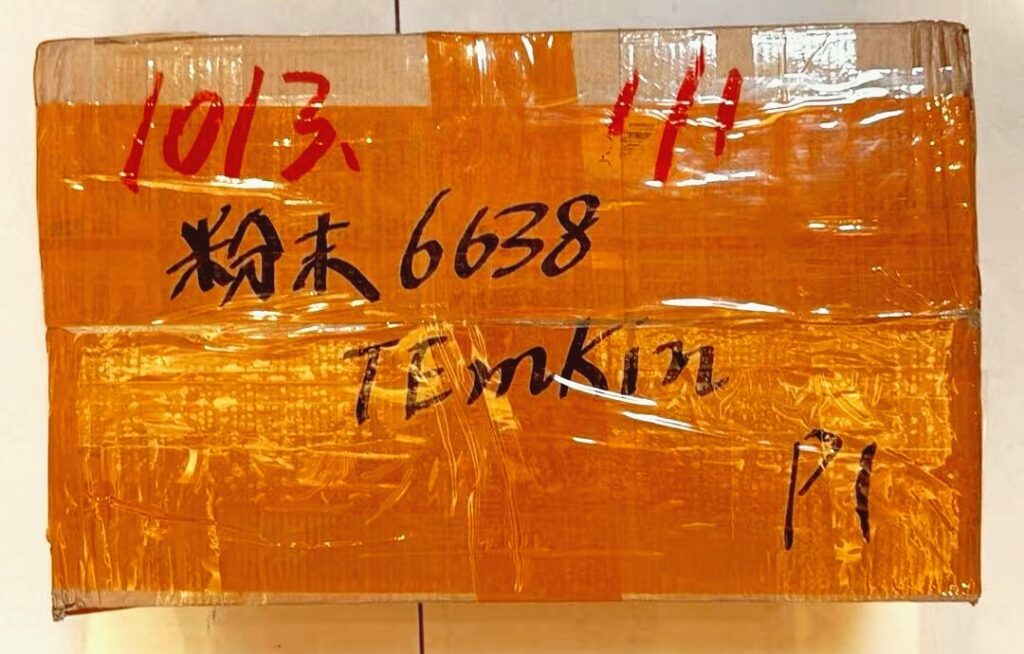 1013、 1/1
粉末 6638
TEmKin
P1